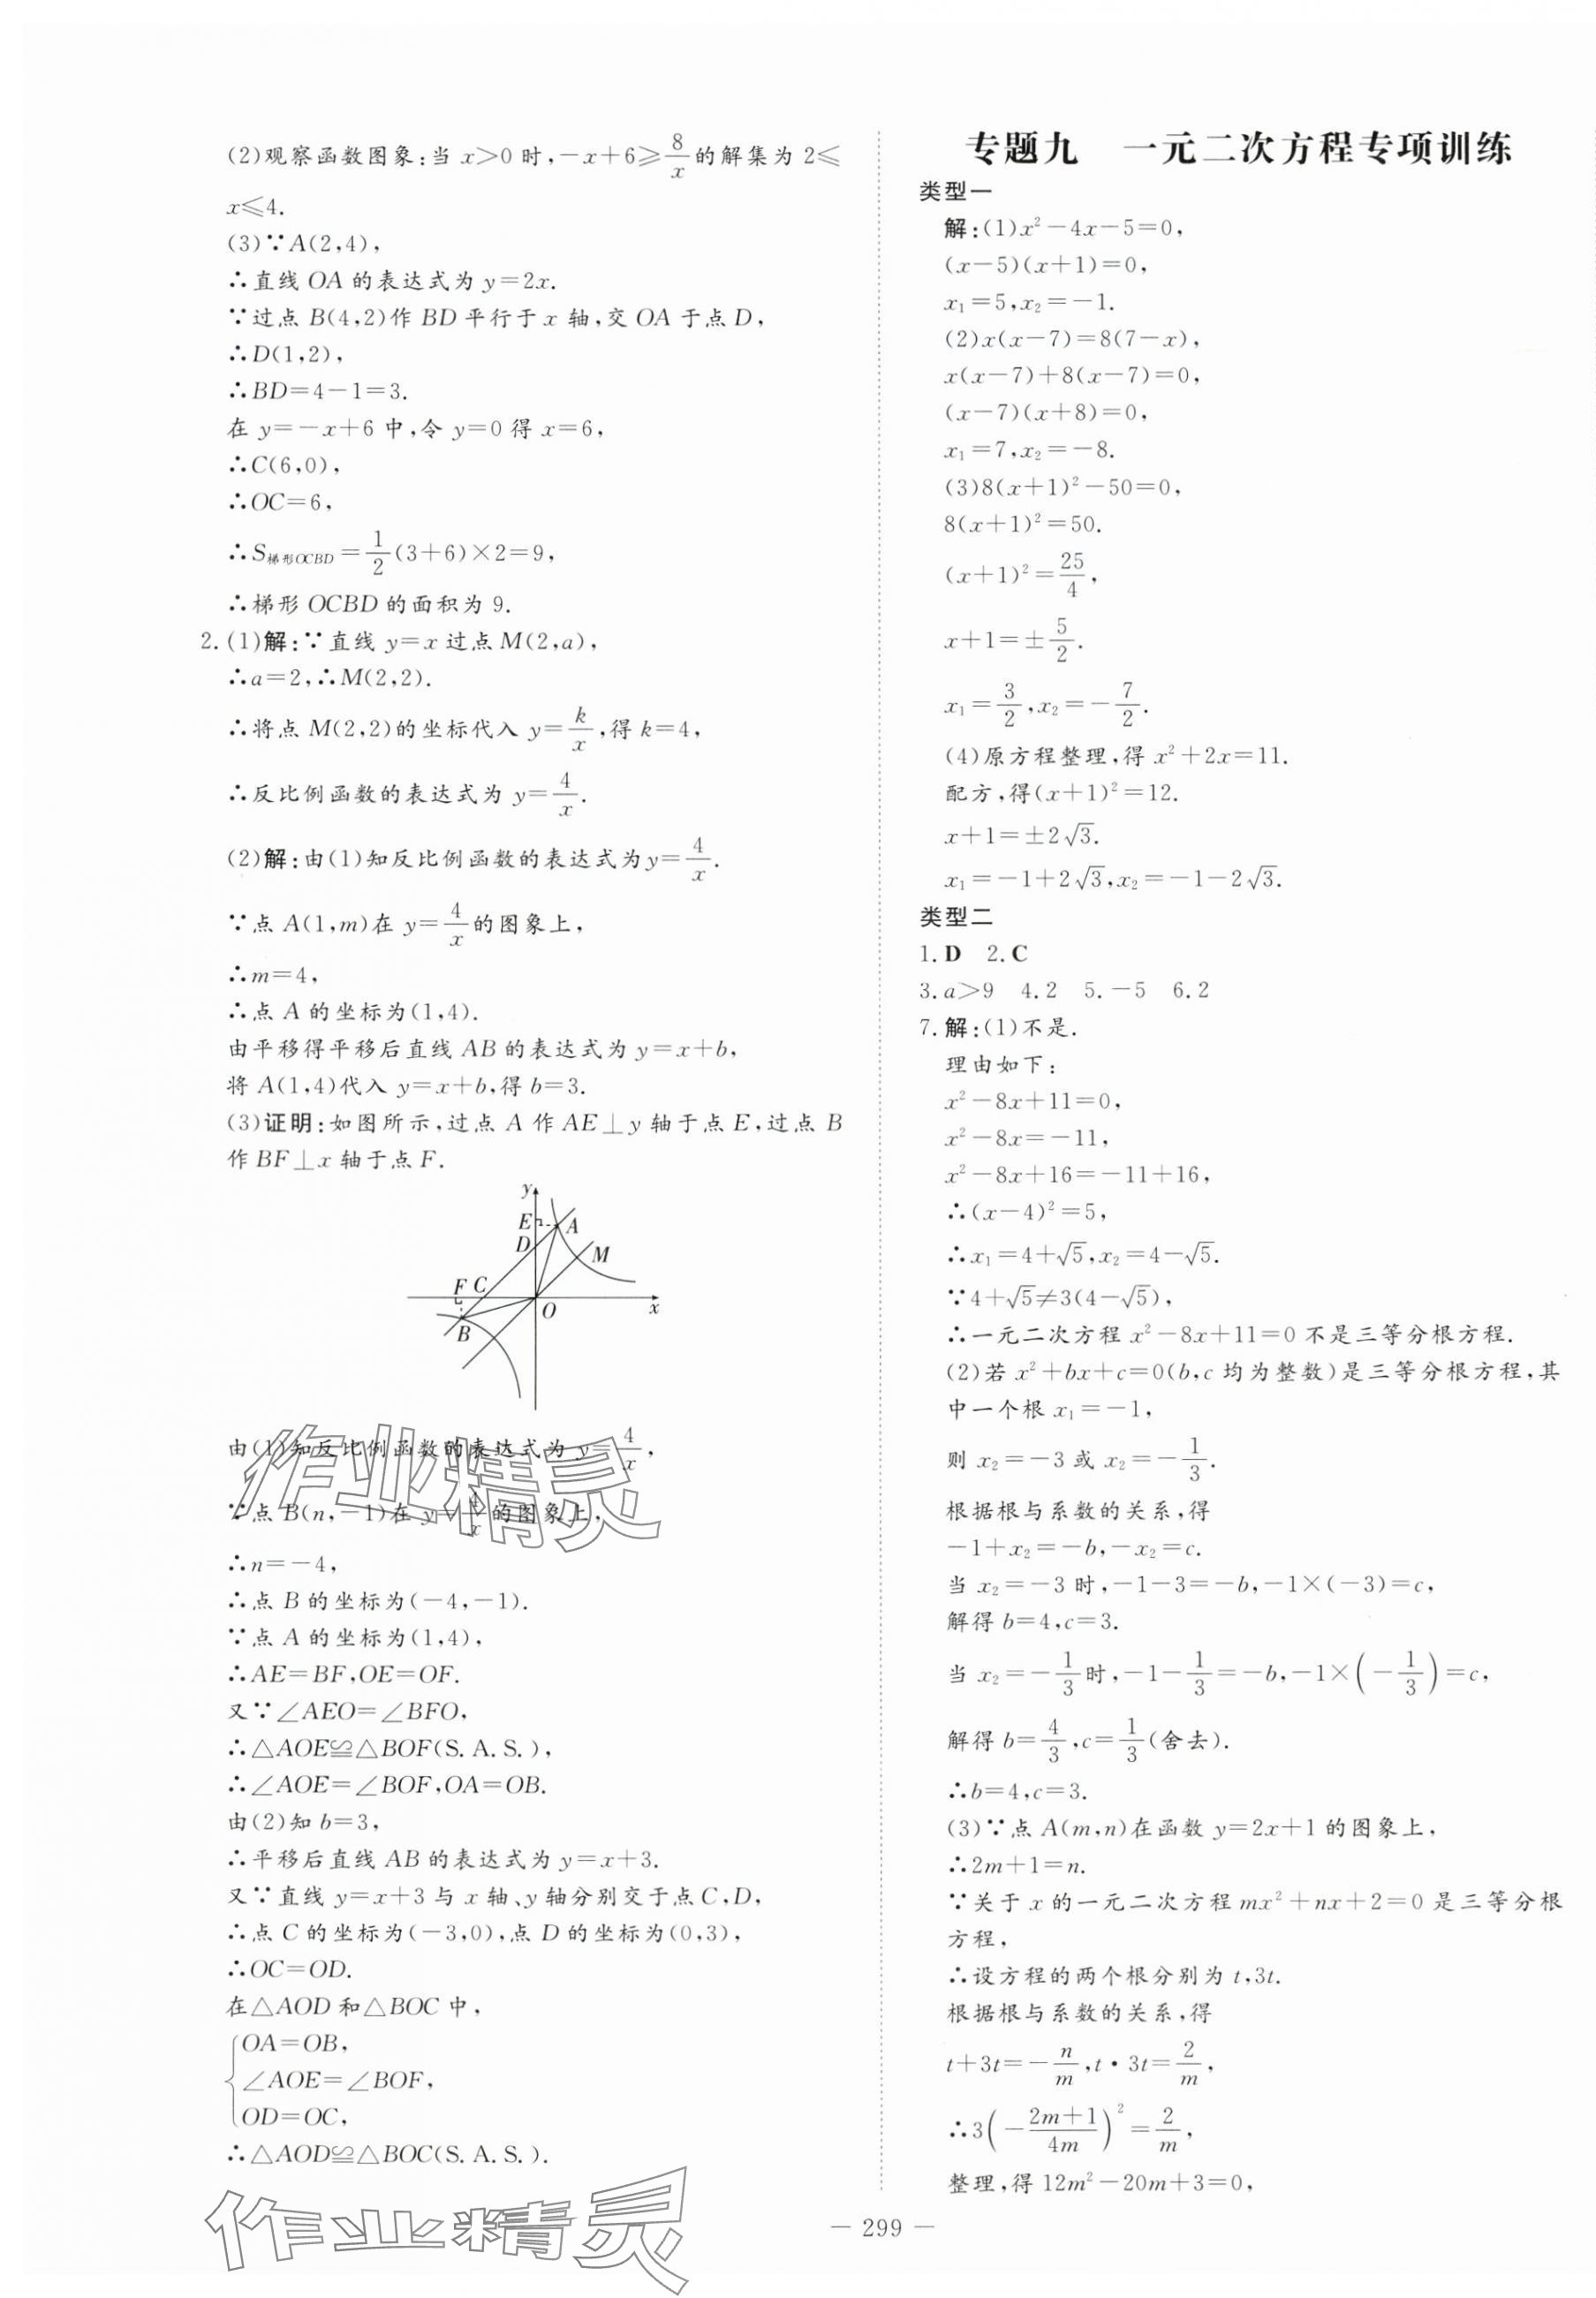 (2)观察函数图象:当 x>0 时,-x+6≥8/x 的解集为 2≤
x≤4.
(3)∵A(2,4),
∴直线 OA 的表达式为 y=2x.
∵过点 B(4,2)作 BD 平行于 x 轴,交 OA 于点 D,
∴D(1,2),
∴BD=4-1=3.
在 y=-x+6 中,令 y=0 得 x=6,
∴C(6,0),
∴OC=6,
∴S梯形OCBD=1/2(3+6)×2=9,
∴梯形 OCBD 的面积为 9.
2.(1)解:∵直线 y=x 过点 M(2,a),
∴a=2,∴M(2,2).
∴将点 M(2,2)的坐标代入 y=k/x,得 k=4,
∴反比例函数的表达式为 y=4/x.
(2)解:由(1)知反比例函数的表达式为y=4/x.
∵点 A(1,m)在 y=4/x 的图象上,
∴m=4,
∴点 A 的坐标为(1,4).
由平移得平移后直线 AB 的表达式为 y=x+b,
将 A(1,4)代入 y=x+b,得 b=3.
(3)证明:如图所示,过点 A 作 AE⊥y 轴于点 E,过点 B
作 BF⊥x 轴于点 F.
y
E A
D
M
F C
O x
B
由(1)知反比例函数的表达式为 y=4/x,
∵点 B(n,-1)在 y=4/x 的图象上,
∴n=-4,
∴点 B 的坐标为(-4,-1).
∵点 A 的坐标为(1,4),
∴AE=BF,OE=OF.
又∵∠AEO=∠BFO,
∴△AOE≌△BOF(S.A.S.),
∴∠AOE=∠BOF,OA=OB.
由(2)知 b=3,
∴平移后直线 AB 的表达式为 y=x+3.
又∵直线 y=x+3 与 x 轴、y 轴分别交于点 C,D,
∴点 C 的坐标为(-3,0),点 D 的坐标为(0,3),
∴OC=OD.
在△AOD 和△BOC 中,
OA=OB,
∠AOE=∠BOF,
OD=OC,
∴△AOD≌△BOC(S.A.S.).
专题九 一元二次方程专项训练
类型一
解:(1)x²-4x-5=0,
(x-5)(x+1)=0,
x₁=5,x₂=-1.
(2)x(x-7)=8(7-x),
x(x-7)+8(x-7)=0,
(x-7)(x+8)=0,
x₁=7,x₂=-8.
(3)8(x+1)²-50=0,
8(x+1)²=50.
(x+1)²=25/4,
x+1=±5/2.
x₁=3/2,x₂=-7/2.
(4)原方程整理,得 x²+2x=11.
配方,得(x+1)²=12.
x+1=±2√3.
x₁=-1+2√3,x₂=-1-2√3.
类型二
1.D 2.C
3.a>9 4.2 5.-5 6.2
7.解:(1)不是.
理由如下:
x²-8x+11=0,
x²-8x=-11,
x²-8x+16=-11+16,
∴(x-4)²=5,
∴x₁=4+√5,x₂=4-√5.
∵4+√5≠3(4-√5),
∴一元二次方程 x²-8x+11=0 不是三等分根方程.
(2)若 x²+bx+c=0(b,c 均为整数)是三等分根方程,其
中一个根 x₁=-1,
则 x₂=-3 或 x₂=-1/3.
根据根与系数的关系,得
-1+x₂=-b,-x₂=c.
当 x₂=-3 时,-1-3=-b,-1×(-3)=c,
解得 b=4,c=3.
当 x₂=-1/3 时,-1-1/3=-b,-1×(-1/3)=c,
解得 b=4/3,c=1/3(舍去).
∴b=4,c=3.
(3)∵点 A(m,n)在函数 y=2x+1 的图象上,
∴2m+1=n.
∵关于 x 的一元二次方程 mx²+nx+2=0 是三等分根
方程,
∴设方程的两个根分别为 t,3t.
根据根与系数的关系,得
t+3t=-n/m,t·3t=2/m,
∴3(-(2m+1)/4m)²=2/m,
整理,得 12m²-20m+3=0,
— 299 —
作业精灵
作业精灵